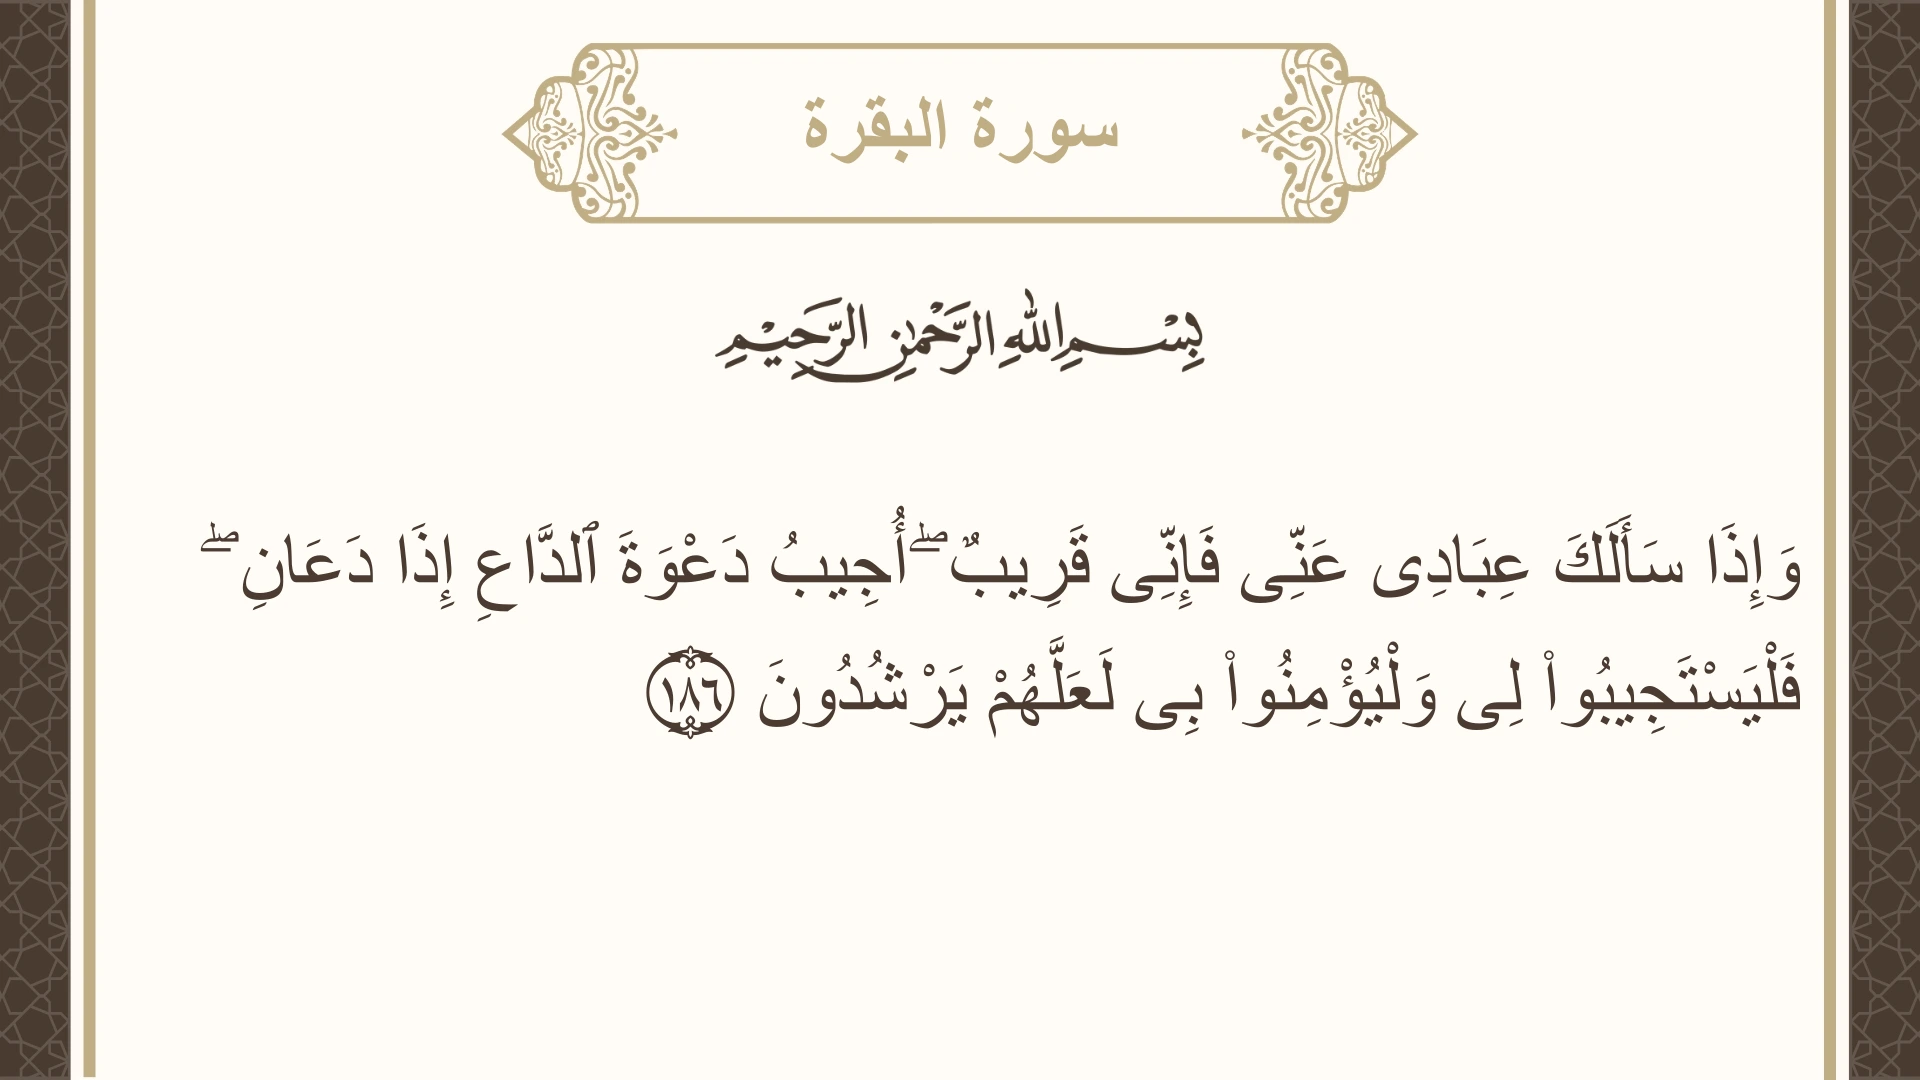 سورة البقرة
بِسْمِ اللهِ الرَّحْمٰنِ الرَّحِيْمِ
وَإِذَا سَأَلَكَ عِبَادِى عَنِّى فَإِنِّى قَرِيبٌ ۖ أُجِيبُ دَعْوَةَ ٱلدَّاعِ إِذَا دَعَانِ ۖ
فَلْيَسْتَجِيبُوا۟ لِى وَلْيُؤْمِنُوا۟ بِى لَعَلَّهُمْ يَرْشُدُونَ ١٨٦